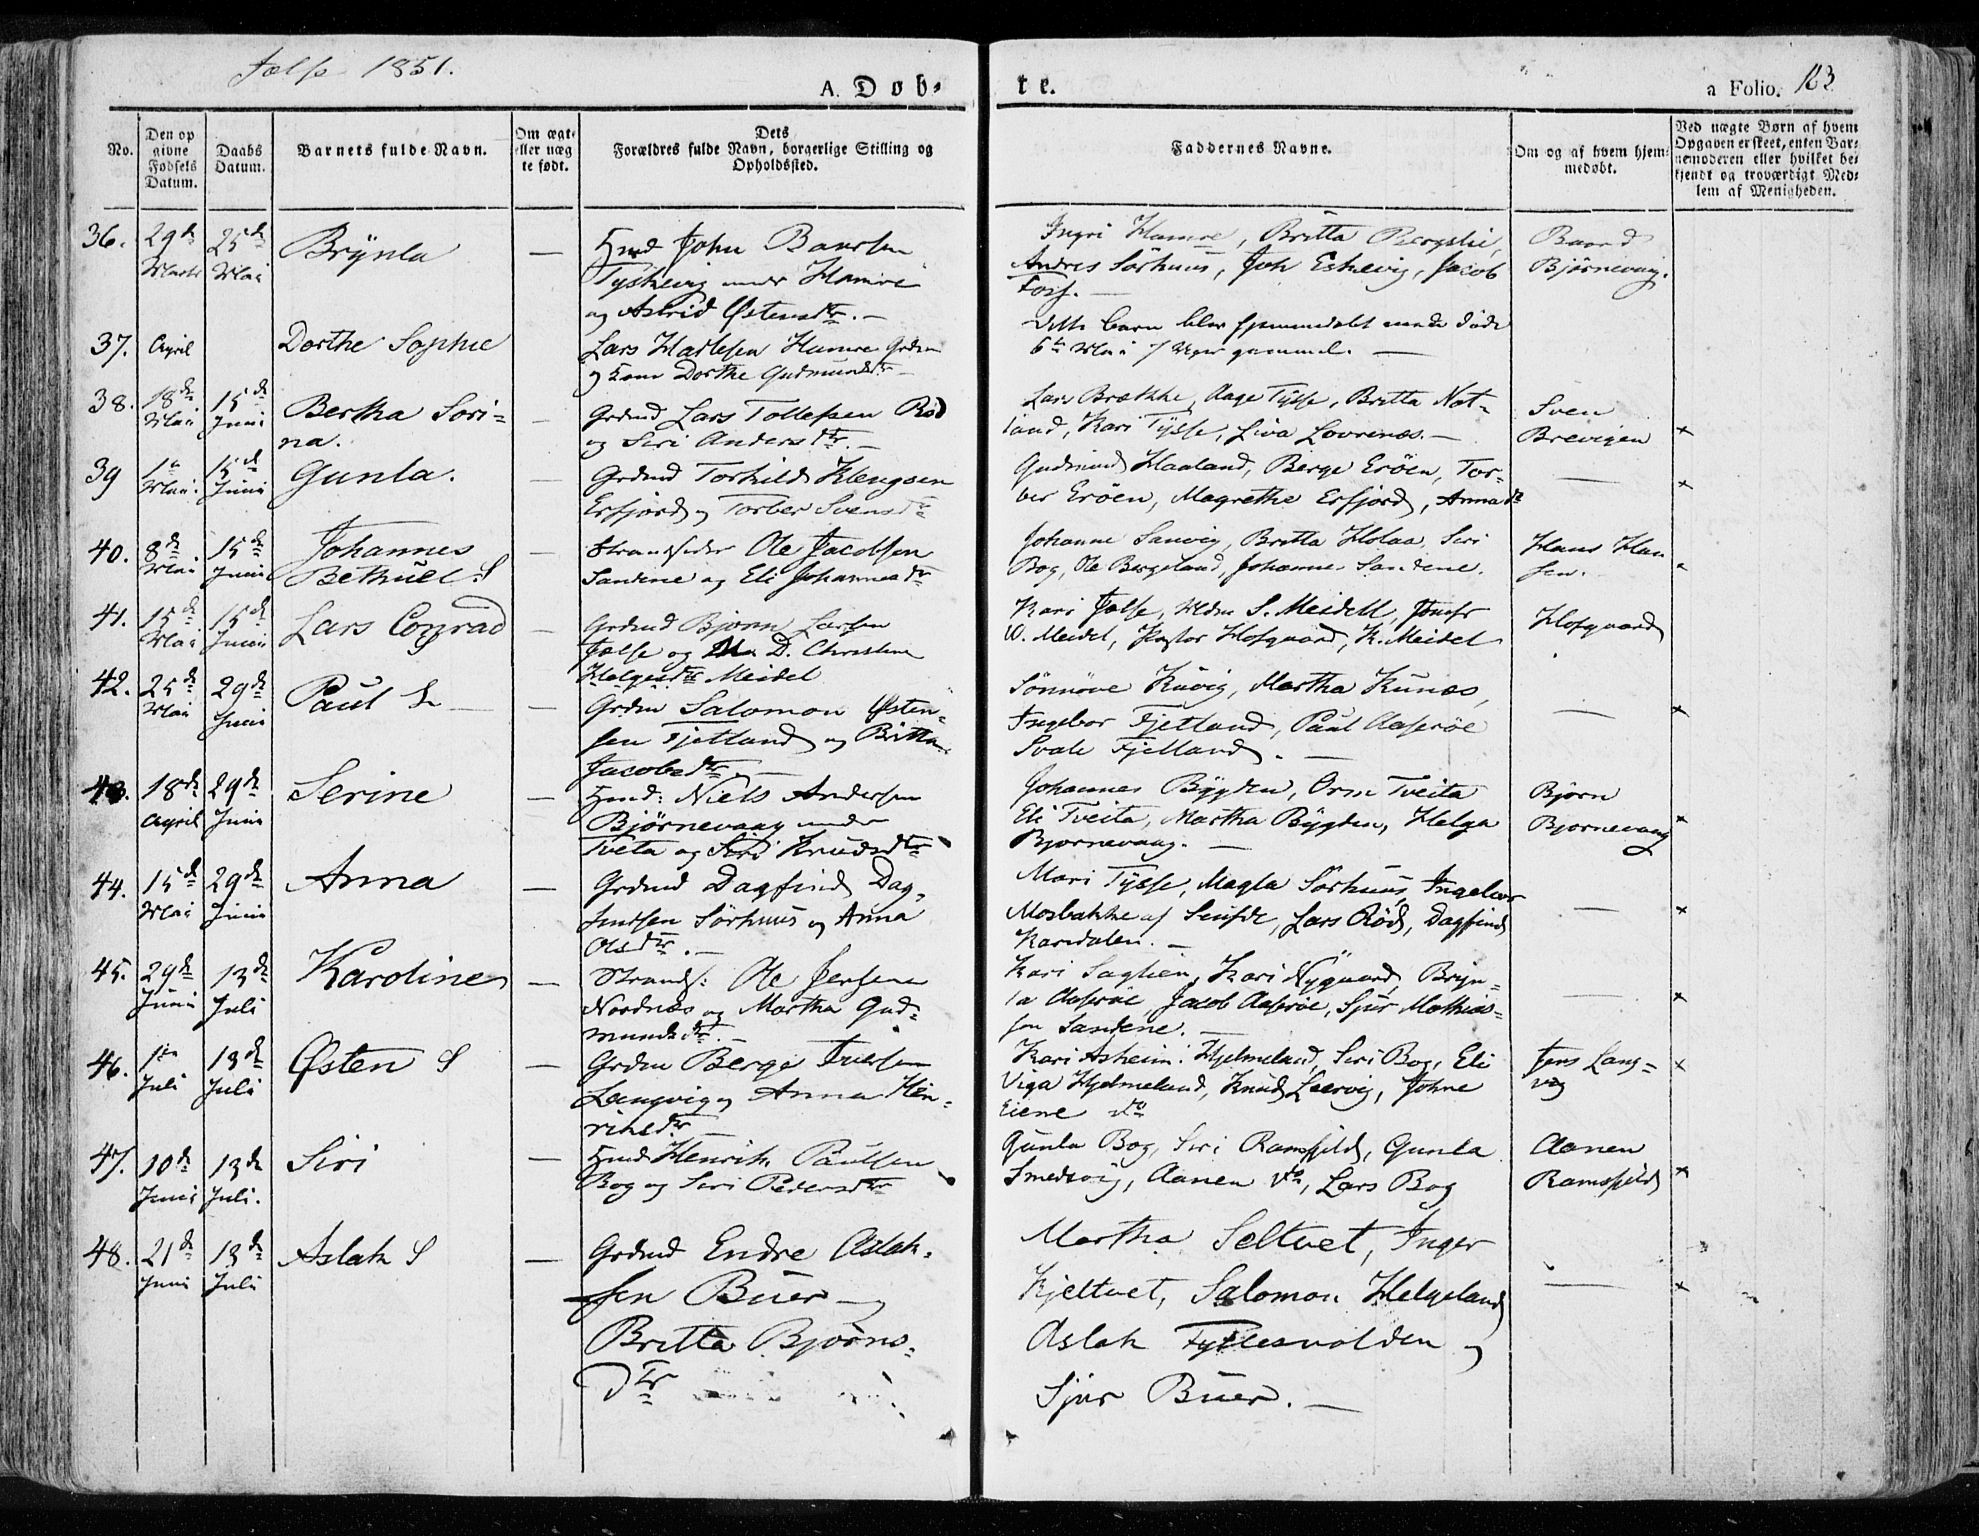 Jælsø 1851.
A. Døb-
te.
a Folio. 123
No.
Den op
givne
Fødsels
Datum.
Daabs
Datum.
Barnets fulde Navn.
Om ægt-
eller uæg
te født.
Dets
Forældres fulde Navn, borgerlige Stilling og
Opholdssted.
Faddernes Navne.
Om og af hvem hjem-
medøbt.
Ved uægte Børn af hvem
Opgaven er skeet, enten Bar-
nemoderen eller hvilket be-
kjendt og troværdigt Med-
lem af Menigheden.
36. 29de 25de Brÿnla — Hmd John Baarsen
Marts Mai Tyskevig under Hamre
og Astrid Østensdtr. —
Ingri Hamre, Britta Bergslie,
Andres Sørhuus, Joh Eskevig, Jacob
Foss. —
Baard
Bjørnevaag.
37. April Dorthe Sophie
Lars Hansen Hamre Grdm
og Kone Dorthe Gudmundsdtr —
Dette barn blev hjemmedøbt men døde
6te Mai 7 Uger gammel. —
38. 18de 15de Bertha Seri- —
Mai Juni na.
Grdmd Lars Tollefsen Rød
og Siri Andersdtr —
Lars Brække, Aage Tysse, Britta Not-
land, Kari Tysse, Siva Lovrenæs. —
Sven
Brevigen
39 1te 15de Gunla. —
Mai. Juni
Grdmd Torkild Klengsen
Erfjord og Torber Svensdtr
Gudmund Haaland, Berge Erøen, Tor-
ber Erøen, Magrethe Erfjord, Anna do
40. 8de 15de Johannes —
Mai Juni Bethuel. S
Strandsidder Ole Jacobsen
Sandene og Eli Johannesdtr
Johanne Sanvig, Britta Holaa, Seri
Bog, Ole Bergeland, Johannes Sandene.
Hans Han
sen.
41. 15de 15de Lars Conrad —
Mai Juni
Grdmd Bjørn Larsen
Jælse og D. Christine
Helgesdtr Meidel
Kari Jælse, Mdm S. Meidell, Jomfr
W. Meidel, Pastor Hofgaard, K. Meidel
Hofgaard
42. 25de 29de Paul S. —
Mai Juni
Grdm Salomon Østen-
sen Fjetland og Britta
Jacobsdtr —
Sønnøve Kuvig, Martha Kunæs,
Ingebor Fjetland, Paul Aasrøe
Svale Fjetland. —
43. 18de 29de Serine —
April Juni
Hmd: Niels Andersen
Bjørnevaag under
Tveta og Siri Knudsdtr
Johannes Bÿgden, Orm Tveita
Eli Tveita, Martha Bÿgden, Helga
Bjornevaag. —
Bjørn
Bjornevaag
44. 15de 29de Anna —
Mai Juni
Grdmd Dagfind Dag-
findsen Sörhuus og Anna
Olsdtr. —
Mari Tÿsse, Magla Sörhuus, Ingebor
Mosbakke af Søufde, Lars Rød, Dagfind
Karidalen. —
45. 29de 13de Karoline —
Juni Juli
Strands: Ole Jensen
Nordnæs og Martha Gud-
mundsdtr. —
Kari Saglien, Kari Nÿgaard, Bryn-
la Aasrøe, Jacob Aasrøe, Sjur Mathias-
sen Sandene. —
46. 1te 13de Østen S —
Juli Juli
Grdm Berge Iversen
Langvig og Anna Hen-
riksdtr —
Kari Asheim. Hjelmeland, Siri Bog, Eli
Viga Hjelmeland, Knud Leervig, Johne
Eiene do
Jens Lang-
vig
47. 10de 13de Siri —
Juni Juli.
Hmd Henrik Paulsen
Bog og Siri Pedersdtr
Gunla Bog, Siri Ramsfjeld, Gunla
Smedsvig, Aanen do, Lars Bog
Aanen
Ramsfjeld
48. 21de 13de Aslak S —
Juni Juli
Grdmd Endre Aslak-
sen Buer og
Britta Bjørns-
dtr
Martha Seltvet, Inger
Kjeltvet, Salomon Helgeland
Aslak Fyllesvolden og
Sjur Buer. —